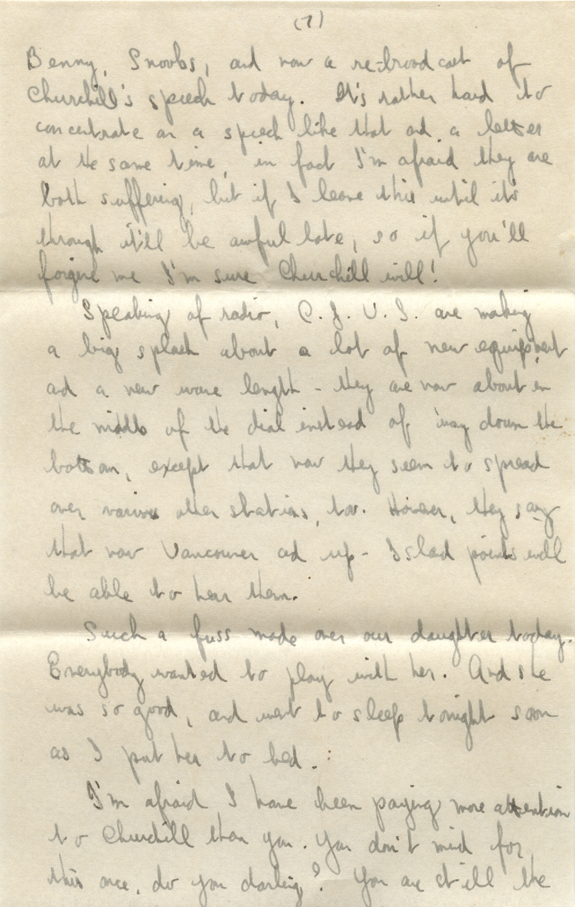 (7)
Benny, Snoobs, and now a re-broadcast of
Churchill's speech today. It's rather hard to
concentrate on a speech like that and a letter
at the same time, in fact I'm afraid they are
both suffering, but if I leave this until it's
through it'll be awful late, so if you'll
forgive me I'm sure Churchill will!
Speaking of radio, C.J.V.I. are making
a big splash about a lot of new equipment
and a new wave length - they are now about in
the middle of the dial instead of 'way down the
bottom, except that now they seem to spread
over various other stations, too. However, they say
that now Vancouver and up-Island points will
be able to hear them.
Such a fuss made over our daughter today.
Everybody wanted to play with her. And she
was so good, and went to sleep tonight soon
as I put her to bed.
I'm afraid I have been paying more attention
to Churchill than you. You don't mind for
this once, do you darling? You are still the